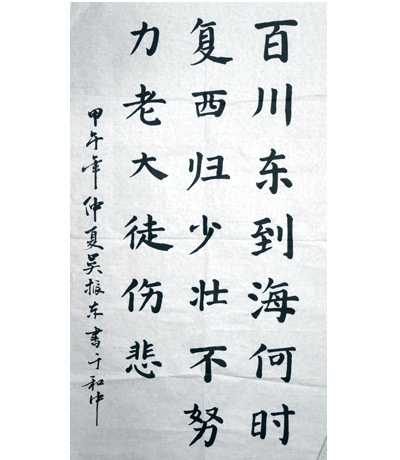 百川东到海何时
复西归少壮不努
力老大徒伤悲
甲午年仲夏吴振东书于和中